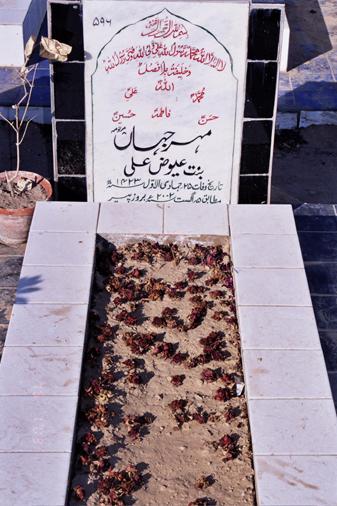 ۵۹۶
بسم اللہ الرحمن الرحیم
لا الہ الا اللہ محمد رسول اللہ علی ولی اللہ وصی رسول اللہ
وخلیفتہ بلا فصل
اللہ
محمدؐ علیؑ
حسنؑ فاطمہؑ حسینؑ
مہر جہاں مرحومہ
بنت عیوض علی
تاریخ وفات ۲۵ جمادی الاول ۱۴۲۳ھ
مطابق ۵ اگست ۲۰۰۲ء بروز پیر